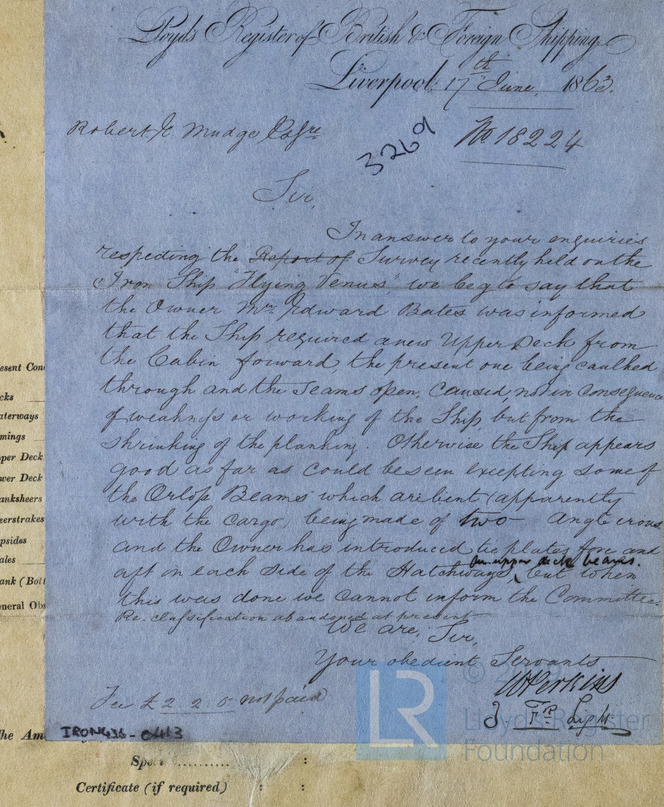 Lloyd's Register of British & Foreign Shipping
Liverpool: 17th June, 1863.
Robert Mudge Esqre
3269
No 18224
Sir,
In answer to your enquiries
respecting the Report of Survey recently held on the
Iron Ship "Flying Venus", we beg to say that
the Owner Mr. Edward Bates was informed
that the Ship required a new Upper Deck from
the Cabin forward the present one being caulked
through and the Seams open, caused, not in consequence
of weakness or working of the Ship but from the
shrinking of the planking. Otherwise the Ship appears
good as far as could be seen excepting some of
the Orlop Beams which are bent (apparently
with the cargo) being made of two Angle irons
and the Owner has introduced tie plates fore and
on upper deck beams.
aft on each side of the Hatchways, but when
this was done we cannot inform the Committee.
Re. classification abandoned at present
We are, Sir,
Your obedient Servants
W Perkins
Fee £2 2. 0 not paid
J Light
IRON436-0413
esent Con
cks
aterways
mings
pper Deck
wer Deck
anksheers
eerstrakes
psides
ales
ank (Bott
neral Obs
he Am
Spe
Certificate (if required) : :
LR
©
Lloyd's Register
Foundation